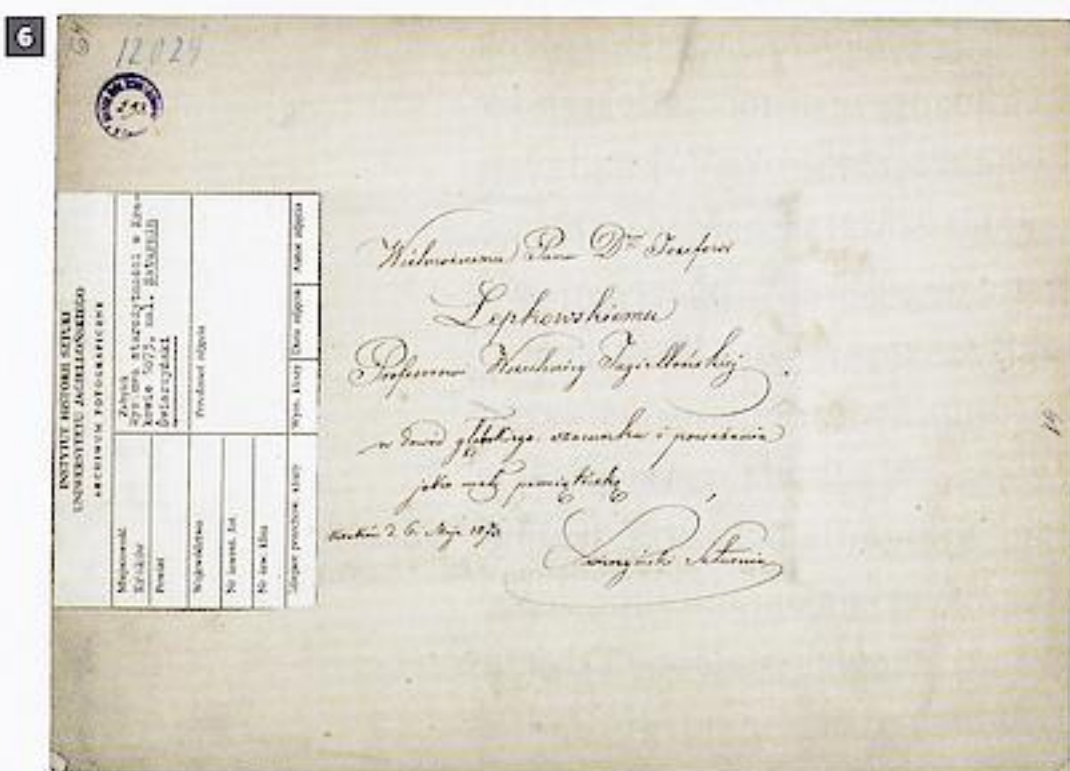 6
12024
INSTYTUT HISTORII SZTUKI
UNIWERSYTETU JAGIELLOŃSKIEGO
ARCHIWUM FOTOGRAFICZNE
Miejscowość
Kraków
Powiat
Województwo
Nr inwent.
Nr inw. klisz
Miejsce przechow. kliszy
Zabytek
Wystawa starożytności w Kra-
kowie
Świerzyński
Przedmiot zdjęcia
Wym. kliszy
Data zdjęcia
Autor zdjęcia
Wielmożnemu Panu Drowi Józefowi
Łepkowskiemu
Profesorowi Jagiellońskiej
w dowód głębokiego szacunku i poważania
jako małą pamiątkę
Kraków d. 6. Maja